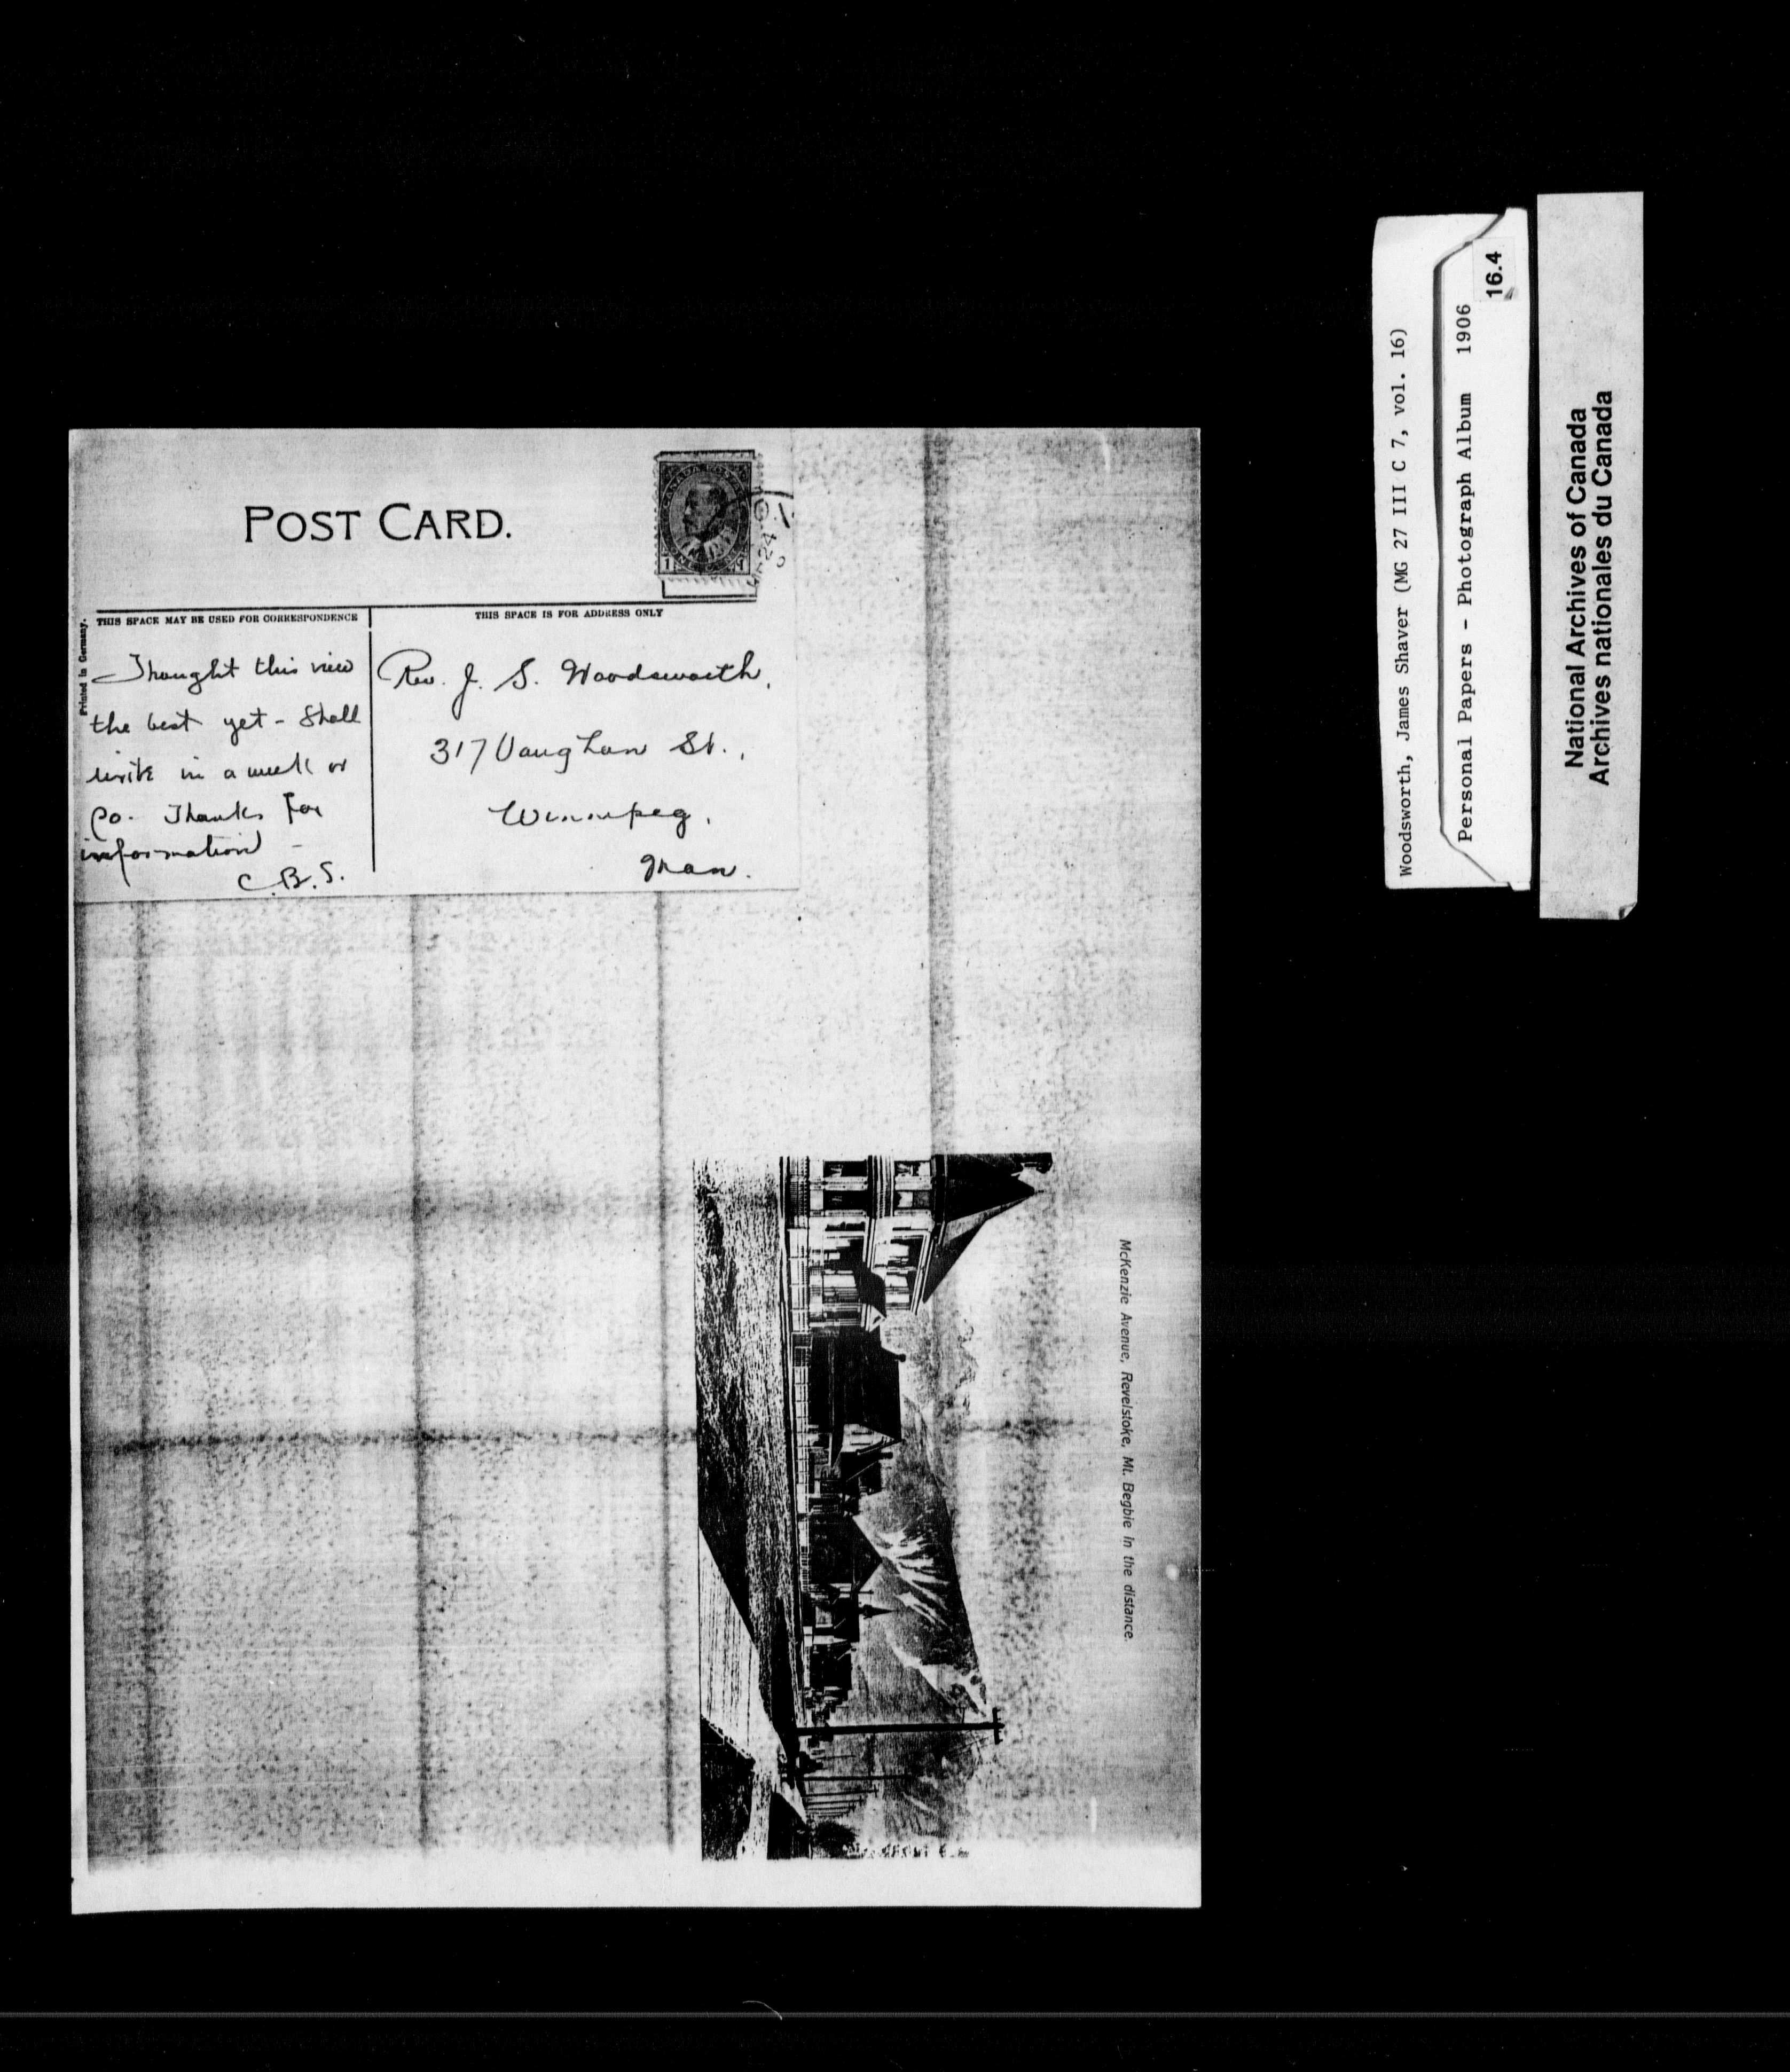 POST CARD.
CANADA POSTAGE
1 1
24
Printed in Germany.
THIS SPACE MAY BE USED FOR CORRESPONDENCE
THIS SPACE IS FOR ADDRESS ONLY
Thought this view
the best yet - Shall
write in a week or
so. Thanks for
information -
C.B.S.
Rev. J. S. Woodsworth,
317 Vaughan St.,
Winnipeg,
Man.
McKenzie Avenue, Revelstoke, Mt. Begbie in the distance.
Woodsworth, James Shaver (MG 27 III C 7, vol. 16)
Personal Papers - Photograph Album 1906
16.4
National Archives of Canada
Archives nationales du Canada